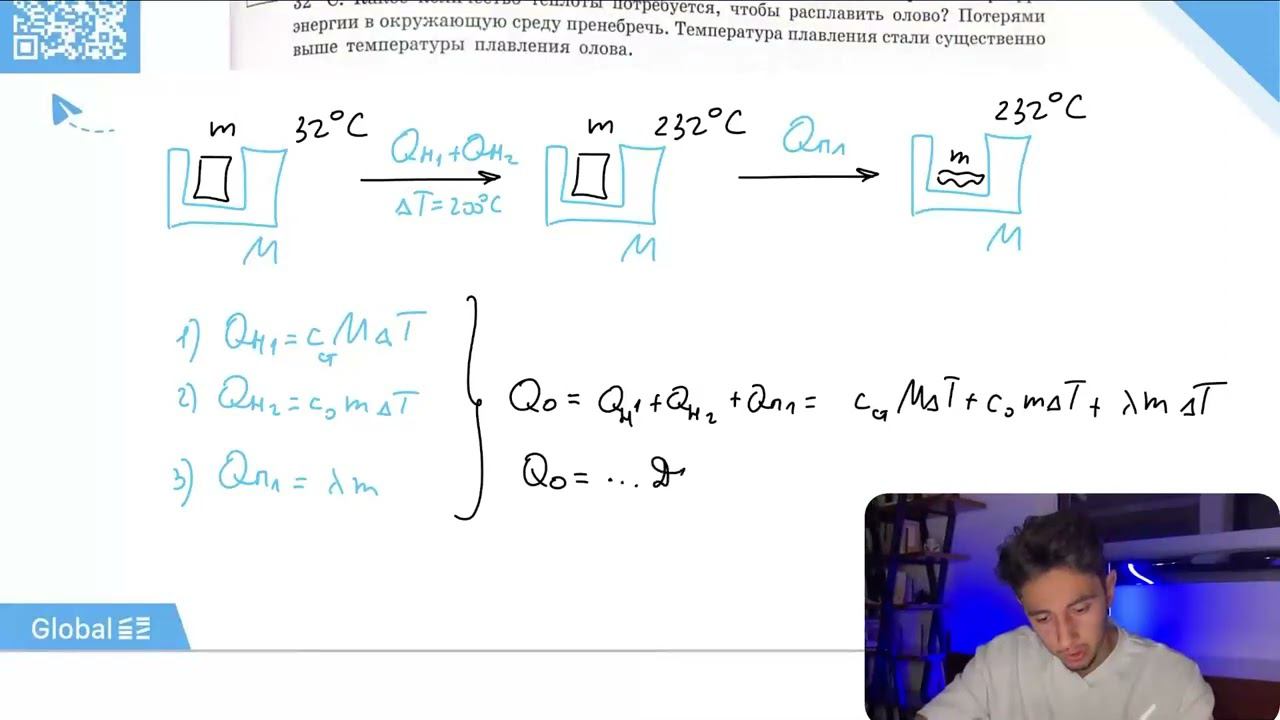 32 °С. Какое количество теплоты потребуется, чтобы расплавить олово? Потерями
энергии в окружающую среду пренебречь. Температура плавления стали существенно
выше температуры плавления олова.
m 32°C Qн₁+Qн₂ m 232°C Qпл 232°C
ΔT=200°C m
M M M
1) Qн₁=c_ст MΔT
2) Qн₂=c₀ mΔT
3) Qпл = λm
Q₀ = Qн₁+Qн₂+Qпл= c_ст MΔT+c₀ mΔT+ λm ΔT
Q₀= ...
Global EE